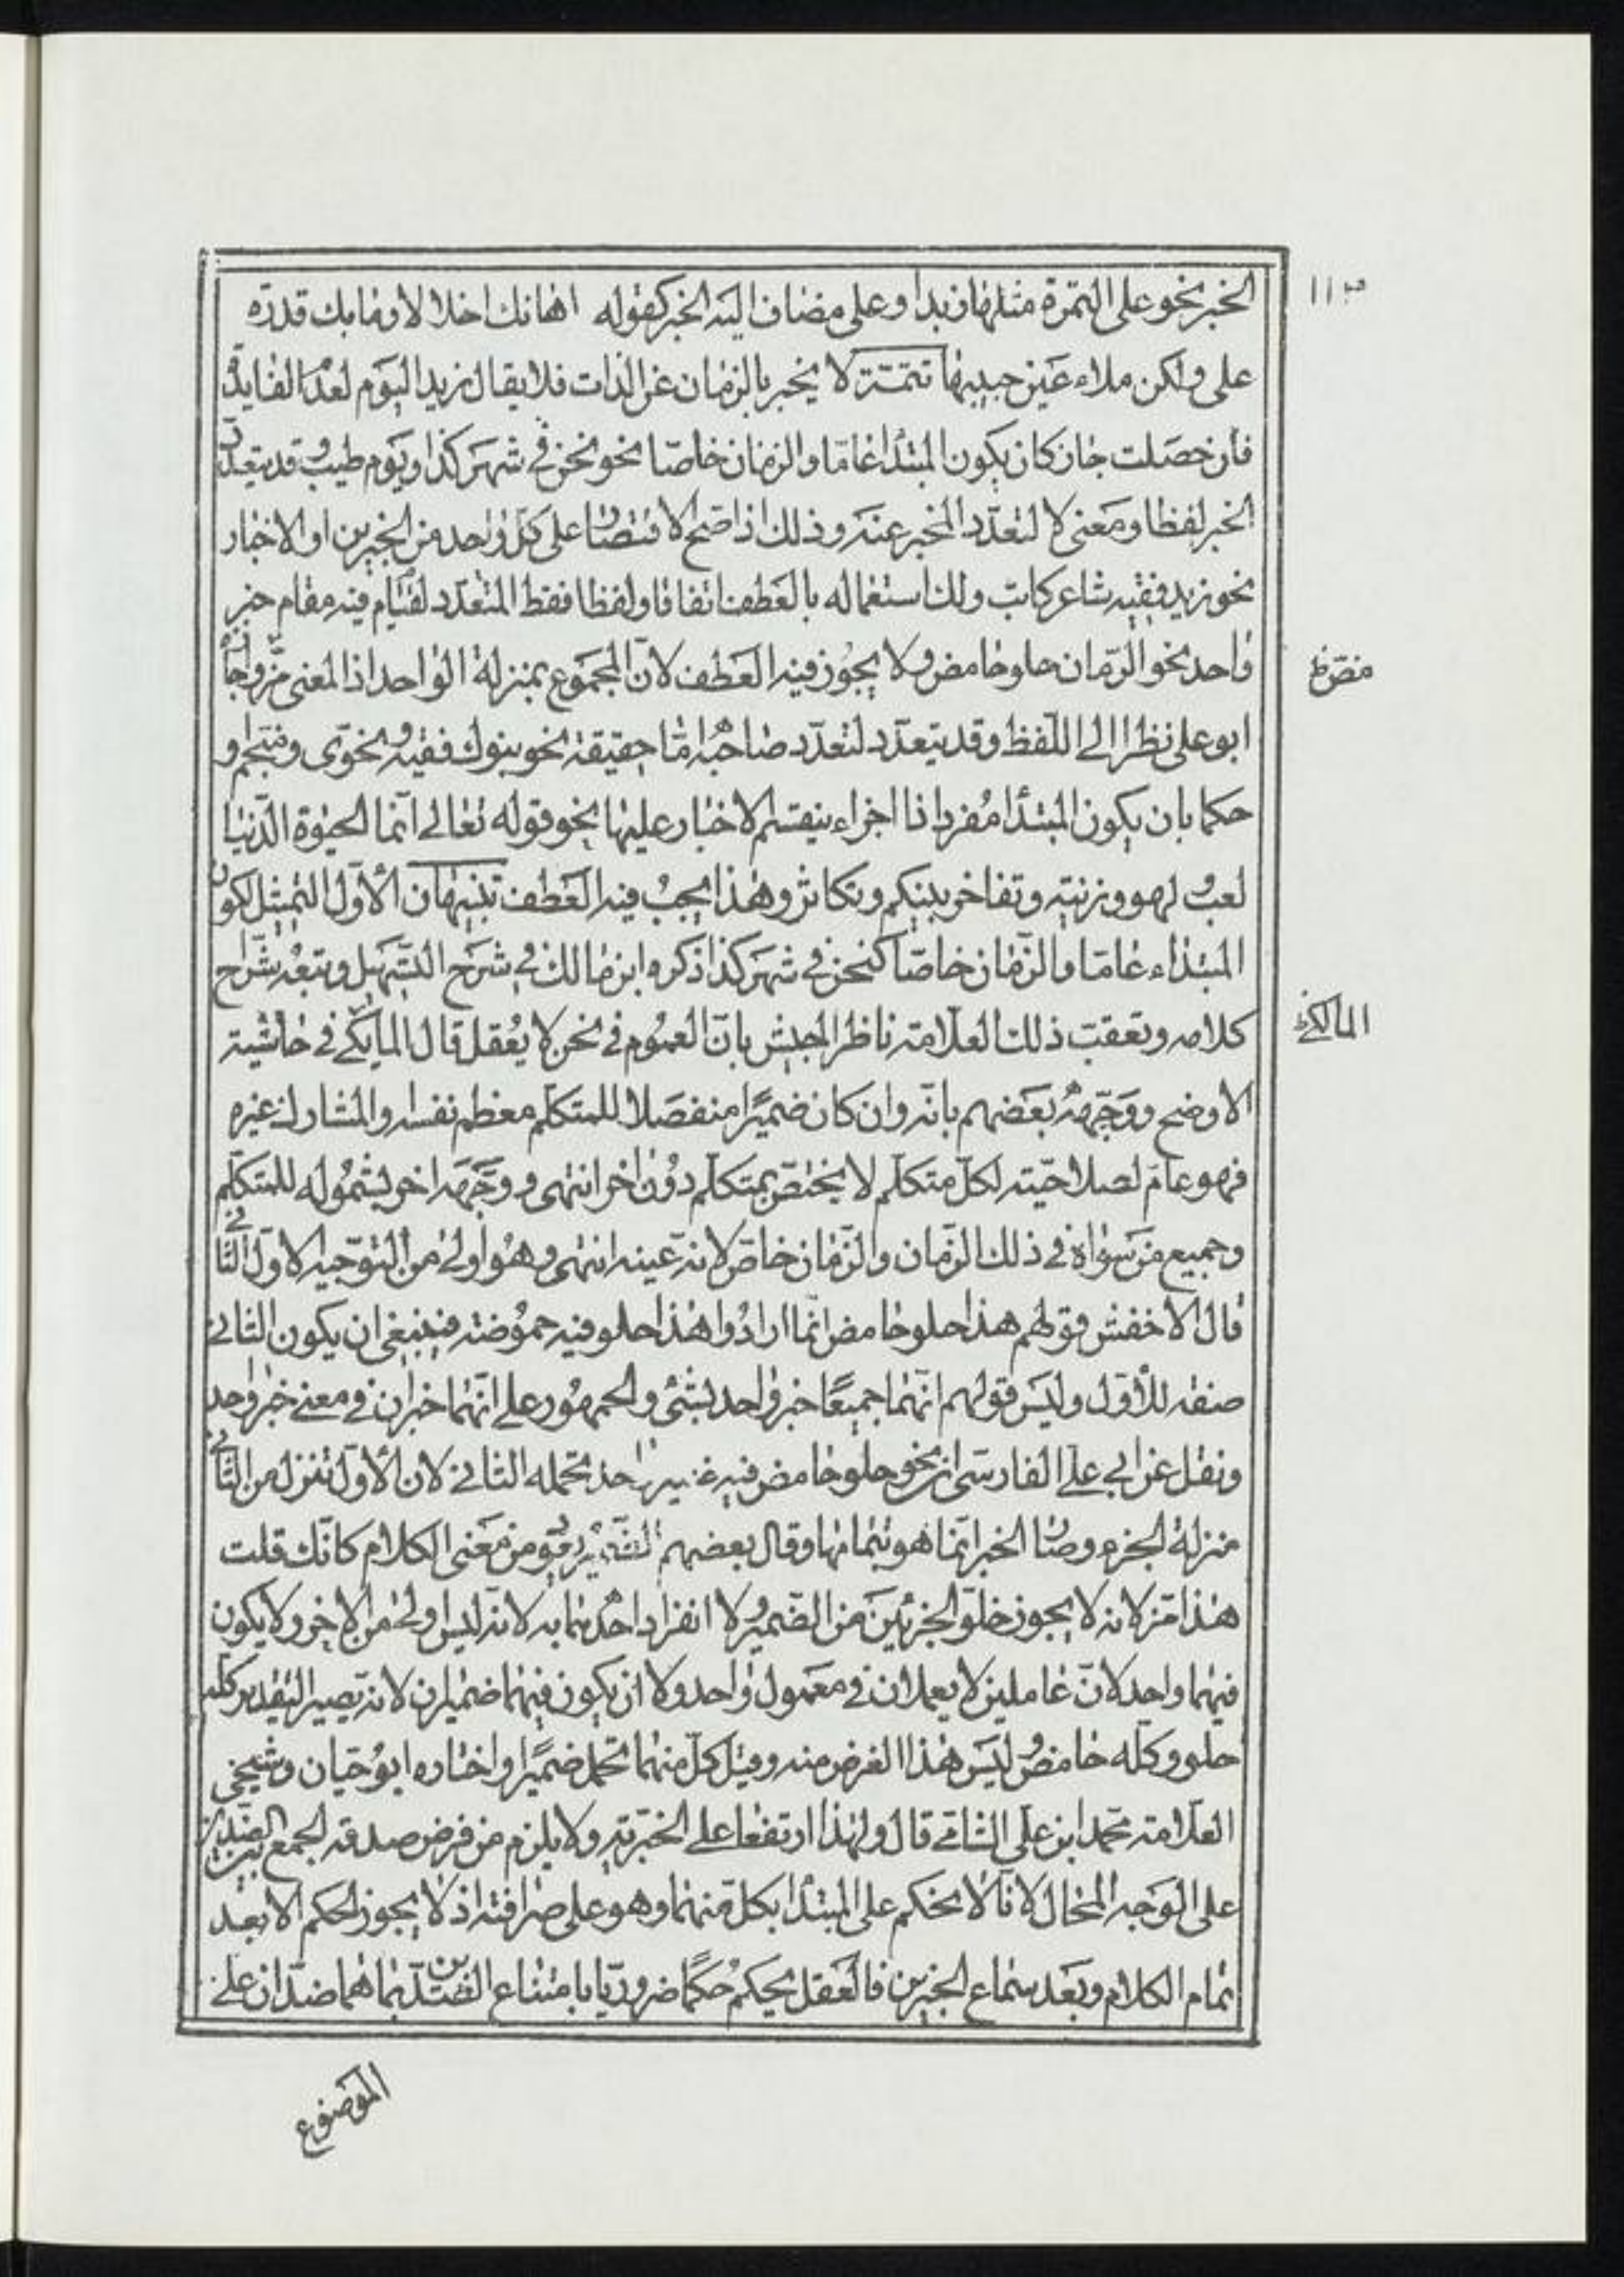 ١١٣
الخبر نحو على التمرة مثلها زبدا وعلى مضاف اليه الخبر كقوله اهابك اجلالا وما بك قدرة
على ولكن ملاء عين حبيبها تتمّة لا يخبر بالزمان عن الذات فلا يقال زيد اليوم لعدم الفايدة
فان حصلت جاز كان يكون المبتدا عامّا والزمان خاصّا نحو نحن في شهر كذا ويوم طيب وقد يتعدّد
الخبر لفظا ومعنى لا لتعدّد المخبر عنه وذلك اذا صحّ الاقتصار على كلّ واحد من الخبرين او الاخبار
نحو زيد فقيه شاعر كاتب ولك استعماله بالعطف اتفاقا ولفظا فقط المتعدّد لقيام فيه مقام خبر
واحد نحو الرّمان حلو حامض ولا يجوز فيه العطف لانّ المجموع بمنزلة الواحد اذ المعنى مزّ واجازه
ابو علي نظرا الى اللّفظ وقد يتعدّد لتعدّد صاحبه امّا حقيقة نحو بنوك فقيه ونحوي ومنجّم و
حكما بان يكون المبتدا مفردا ذا اجزاء ينقسم الاخبار عليها نحو قوله تعالى انّما الحيوة الدّنيا
لعب ولهو وزينة وتفاخر بينكم وتكاثر وهذا يجب فيه العطف تنبيهان الأوّل التمثيل لكون
المبتداء عامّا والزّمان خاصّا كنحن في شهر كذا ذكره ابن مالك في شرح التسهيل وتبعه شرّاح
كلامه وتعقّب ذلك العلّامة ناظر الجيش بانّ العموم في نحن لا يعقل قال المالكي في حاشية
الاوضح ووجّهه بعضهم بانّه وان كان ضميرًا منفصلا للمتكلّم معظم نفسه والمشارك غيره
فهو عامّ لصلاحيّته لكلّ متكلّم لا يختصّ بمتكلّم دون اخر انتهى ووجّهه اخر بشموله للمتكلّم
وجميع من سواه في ذلك الزّمان والزّمان خاصّ لانه عينه انتهى وهو اولى من التوجيه الاوّل الثّاني
قال الاخفش قولهم هذا حلو حامض انّما ارادوا هذا حلو فيه حموضة فينبغي ان يكون الثاني
صفة للأوّل وليس قولهم انّهما جميعًا خبر واحد بشئ والجمهور على انّهما خبران في معنى خبر واحد
ونقل عن ابي علي الفارسي ان نحو حلو حامض فيه ضمير واحد تحمله الثاني لان الأوّل تنزل من الثّاني
منزلة الجزء وصار الخبر انّما هو بتمامها وقال بعضهم الضّمير يعود من معنى الكلام كانّك قلت
هذا مزّ لانه لا يجوز خلوّ الجزئين من الضّمير ولا انفراد احدهما به لانه ليس اولى من الاخر ولا يكون
فيهما واحد لانّ عاملين لا يعملان في معمول واحد ولا ان يكون فيهما ضميران لانه يصير التقدير كله
حلو وكلّه حامض وليس هذا الغرض منه وقيل كلّ منهما تحمّل ضميرًا واختاره ابو حيّان وشيخي
العلّامة محمّد ابن علي الشامي قال ولهذا ارتفعا على الخبريّة ولا يلزم من فرض صدقه الجمع بين الضّدين
على الوجه المحال لانّا لا نحكم على المبتدا بكلّ منهما وهو على صرافته اذ لا يجوز الحكم الا بعد
تمام الكلام وبعد سماع الخبرين فالعقل يحكم حكمًا ضروريّا بامتناع الضدّين بما هما ضدّان على
مضرة
المالكي
الموضوع